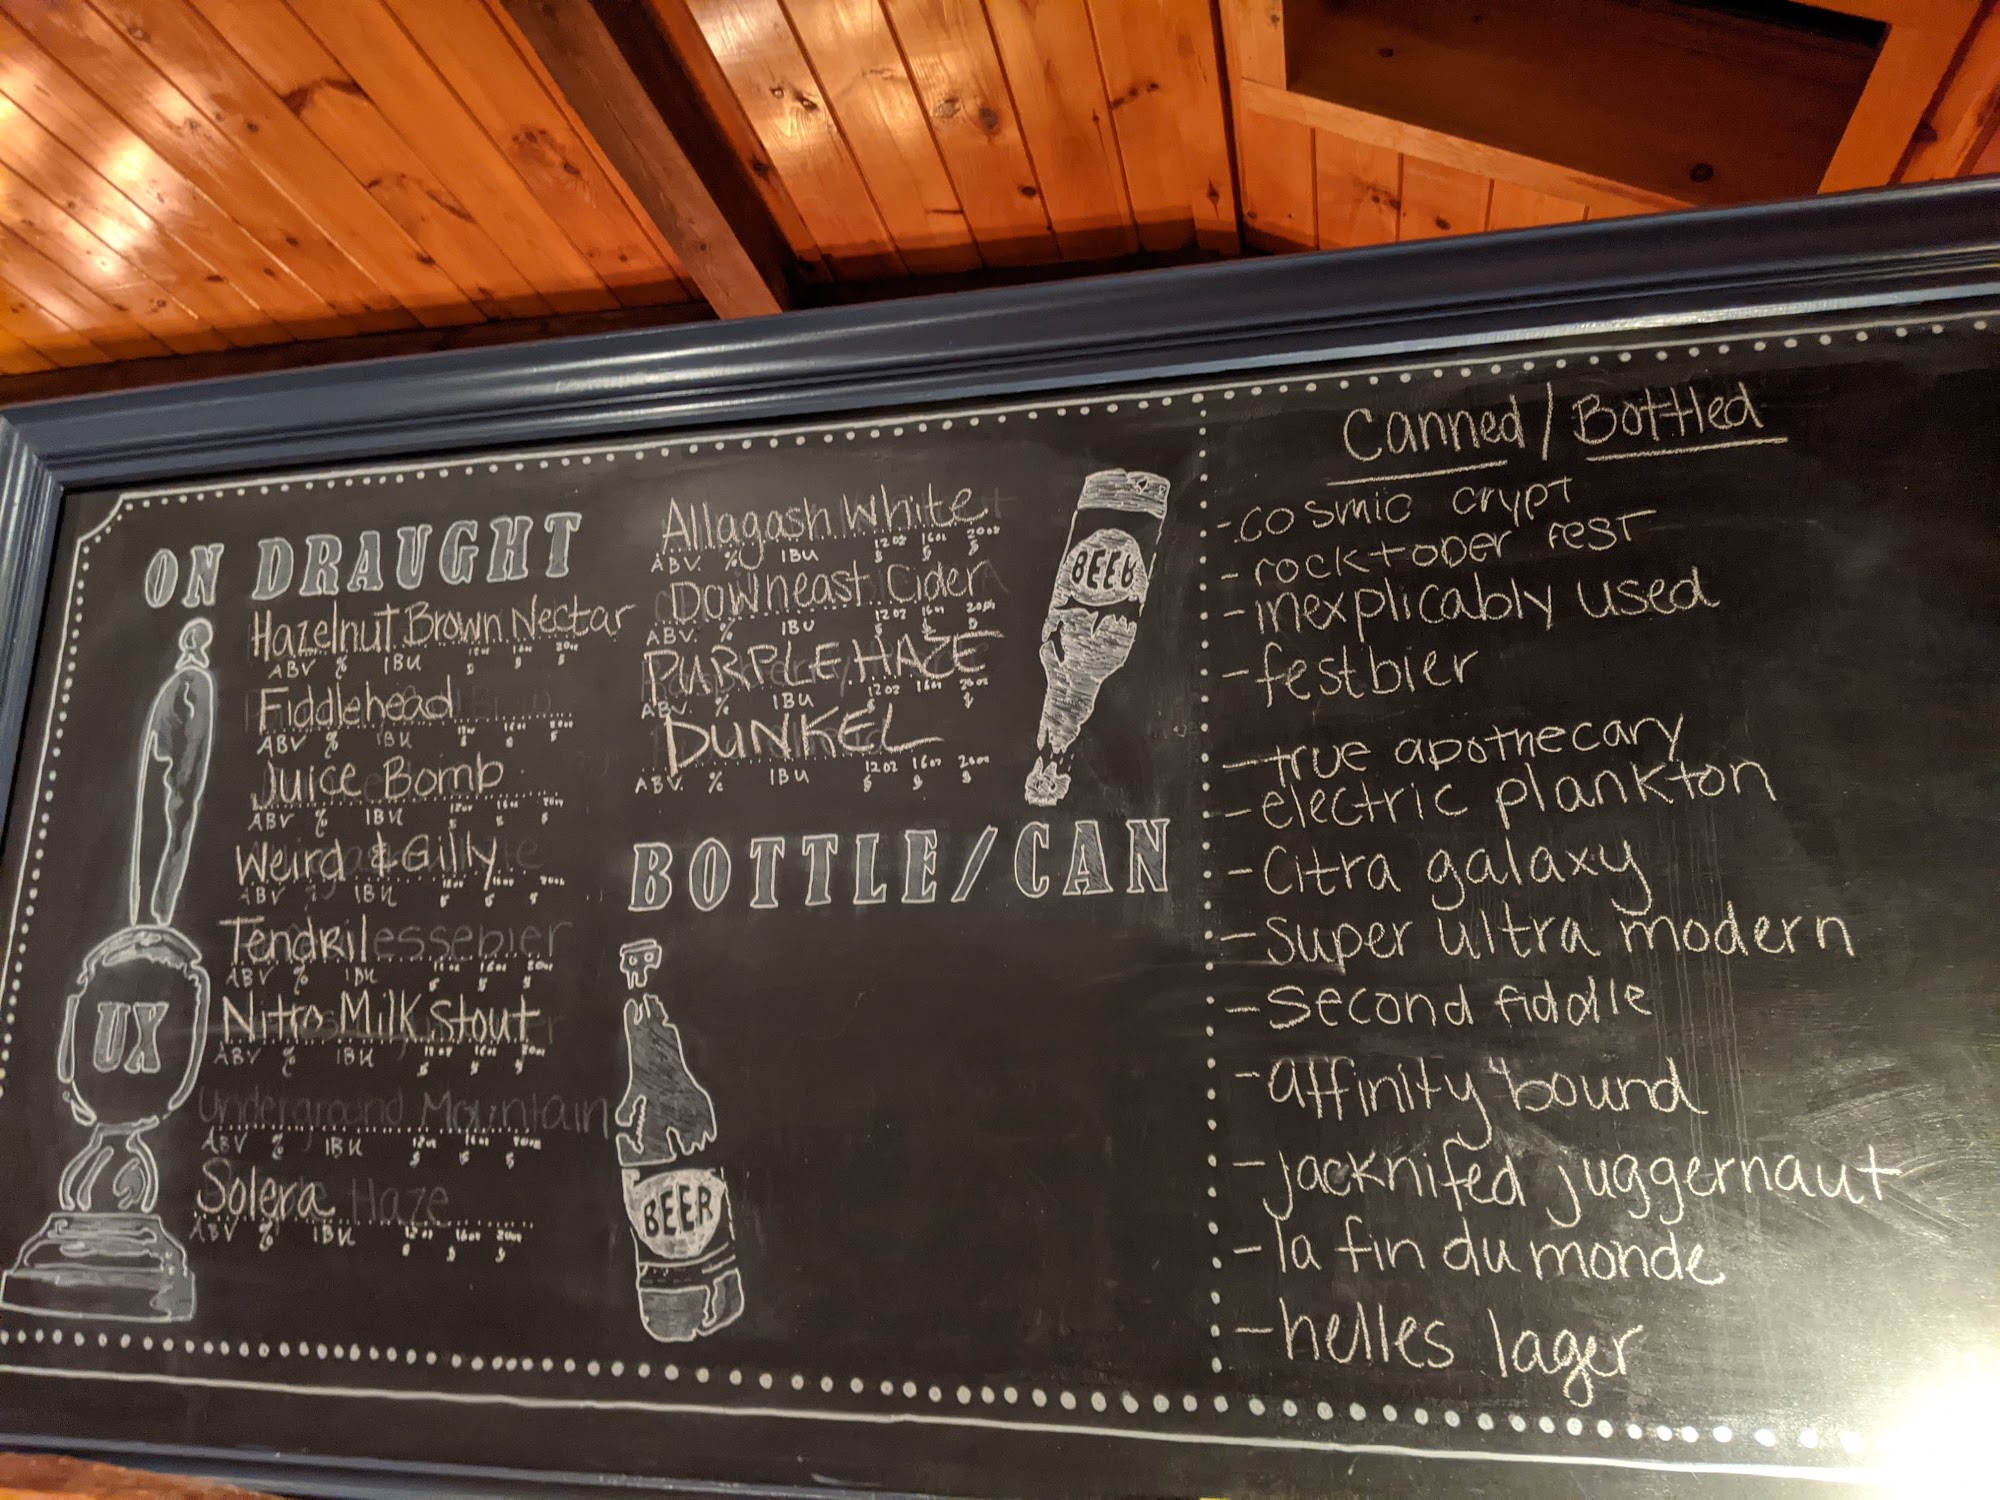 ON DRAUGHT
Hazelnut Brown Nectar
ABV % IBU 12oz 16oz 20oz
$ $ $
Fiddlehead
ABV % IBU 12oz 16oz 20oz
$ $ $
Juice Bomb
ABV % IBU 12oz 16oz 20oz
$ $ $
Weird & Gilly
ABV % IBU 12oz 16oz 20oz
$ $ $
Tendril
ABV % IBU 12oz 16oz 20oz
$ $ $
Nitro Milk Stout
ABV % IBU 12oz 16oz 20oz
$ $ $
Underground Mountain
ABV % IBU 12oz 16oz 20oz
$ $ $
Solera Haze
ABV % IBU 12oz 16oz 20oz
$ $ $
UX
Allagash White
ABV. % IBU 12oz 16oz 20oz
$ $ $
Downeast Cider
ABV. % IBU 12oz 16oz 20oz
$ $ $
PURPLE HAZE
ABV. % IBU 12oz 16oz 20oz
$
DUNKEL
ABV. % IBU 12oz 16oz 20oz
$ $ $
BEER
BOTTLE/CAN
BEER
Canned / Bottled
- cosmic crypt
- rocktober fest
- inexplicably used
- festbier
- true apothecary
- electric plankton
- Citra galaxy
- Super ultra modern
- Second fiddle
- affinity bound
- jacknifed juggernaut
- la fin du monde
- helles lager